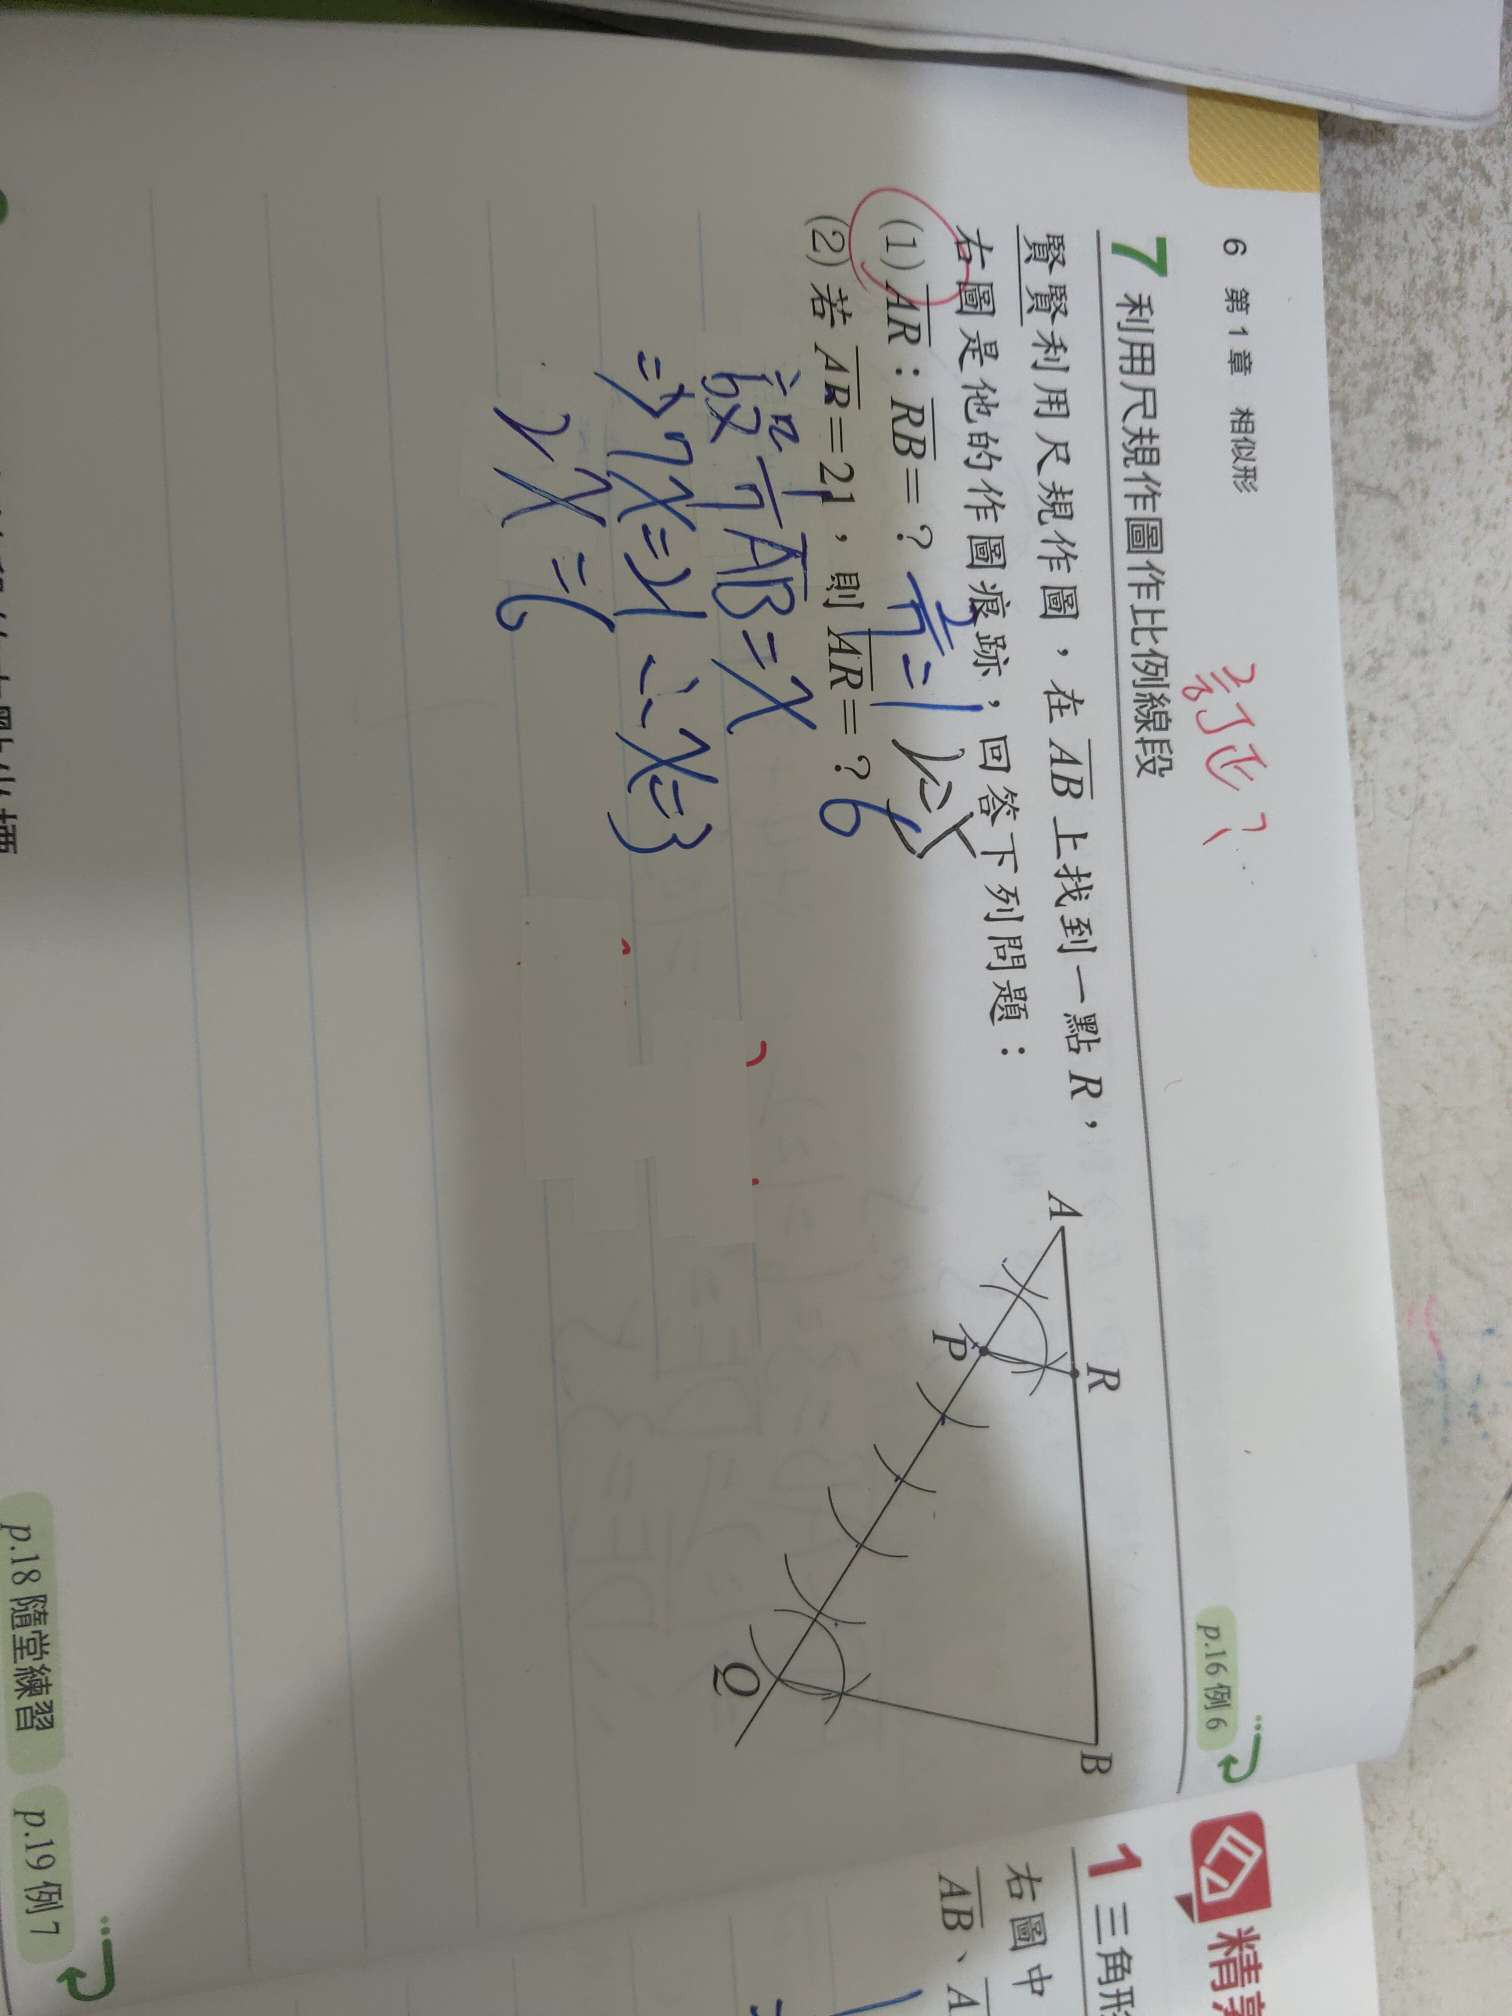 6 第1章 相似形
訂正?
7 利用尺規作圖作比例線段
p.16 例6
賢賢利用尺規作圖,在 AB 上找到一點 R,
右圖是他的作圖痕跡,回答下列問題:
(1) AR:RB=?
(2) 若 AB=21,則 AR=? 6
設 1/7 AB = x
=> 7x=21 ∴x=3
2x=6
A
R
B
P
Q
p.18 隨堂練習 p.19 例7
1 三角形
右圖中
AB、A